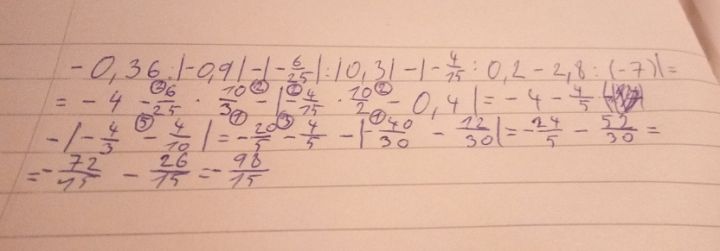 - 0,36 : |-0,9| - |-6/25| : |0,3| - |-4/15 : 0,2 - 2,8 : (-7)| =
= - 4 - 6/25 · 10/3 - |-4/15 · 10/2 - 0,4| = - 4 - 4/5
- |-4/3 - 4/10| = - 20/5 - 4/5 - |-40/30 - 12/30| = - 24/5 - 52/30 =
= - 72/15 - 26/15 = - 98/15